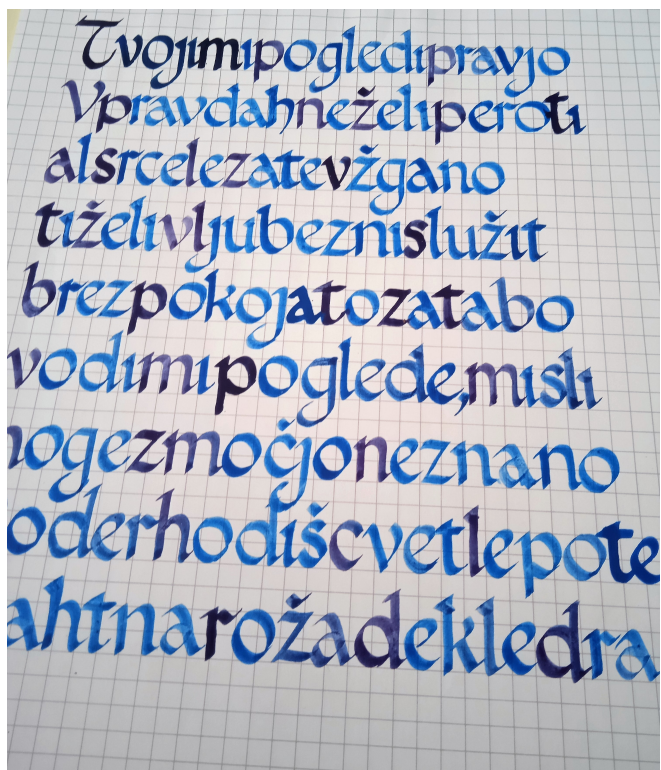 Tvojimipogledipravjo
Vpravdahneželiperoti
alsrcelezatevžgano
tiželivljubeznislužit
brezpokojatozatabo
vodimipoglede,misli
nogezmočjoneznano
oderhodišcvetlepote
ahtnarožadekledra